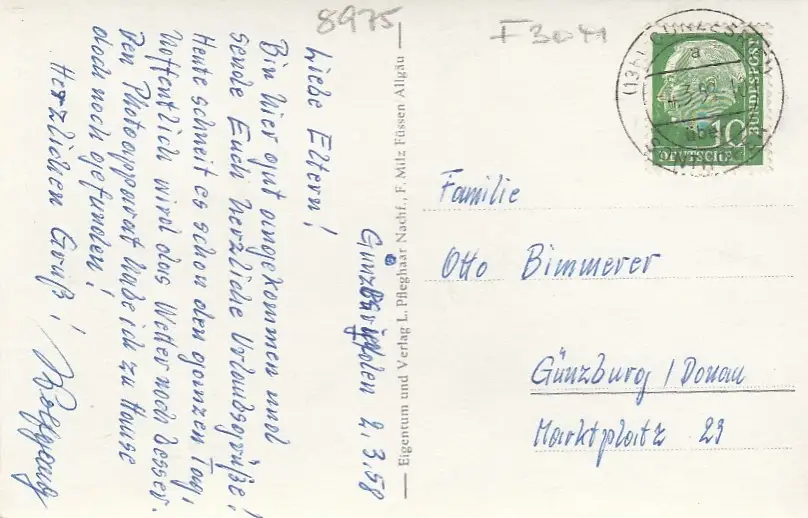 8975
F 3041
Günzesrieden 2.3.58
Liebe Eltern!
Bin hier gut angekommen und
sende Euch herzliche Urlaubsgrüße!
Heute schneit es schon den ganzen Tag,
hoffentlich wird das Wetter noch besser.
Den Photoapparat habe ich zu Hause
doch noch gefunden!
Herzlichen Gruß!
Wolfgang
Eigentum und Verlag L. Pfleghaar Nachf., F. Milz Füssen Allgäu
(13b) GUNZESRIED
a
über
10
DEUTSCHE
BUNDESPOST
Familie
Otto Bimmerer
Günzburg / Donau
Marktplatz 23